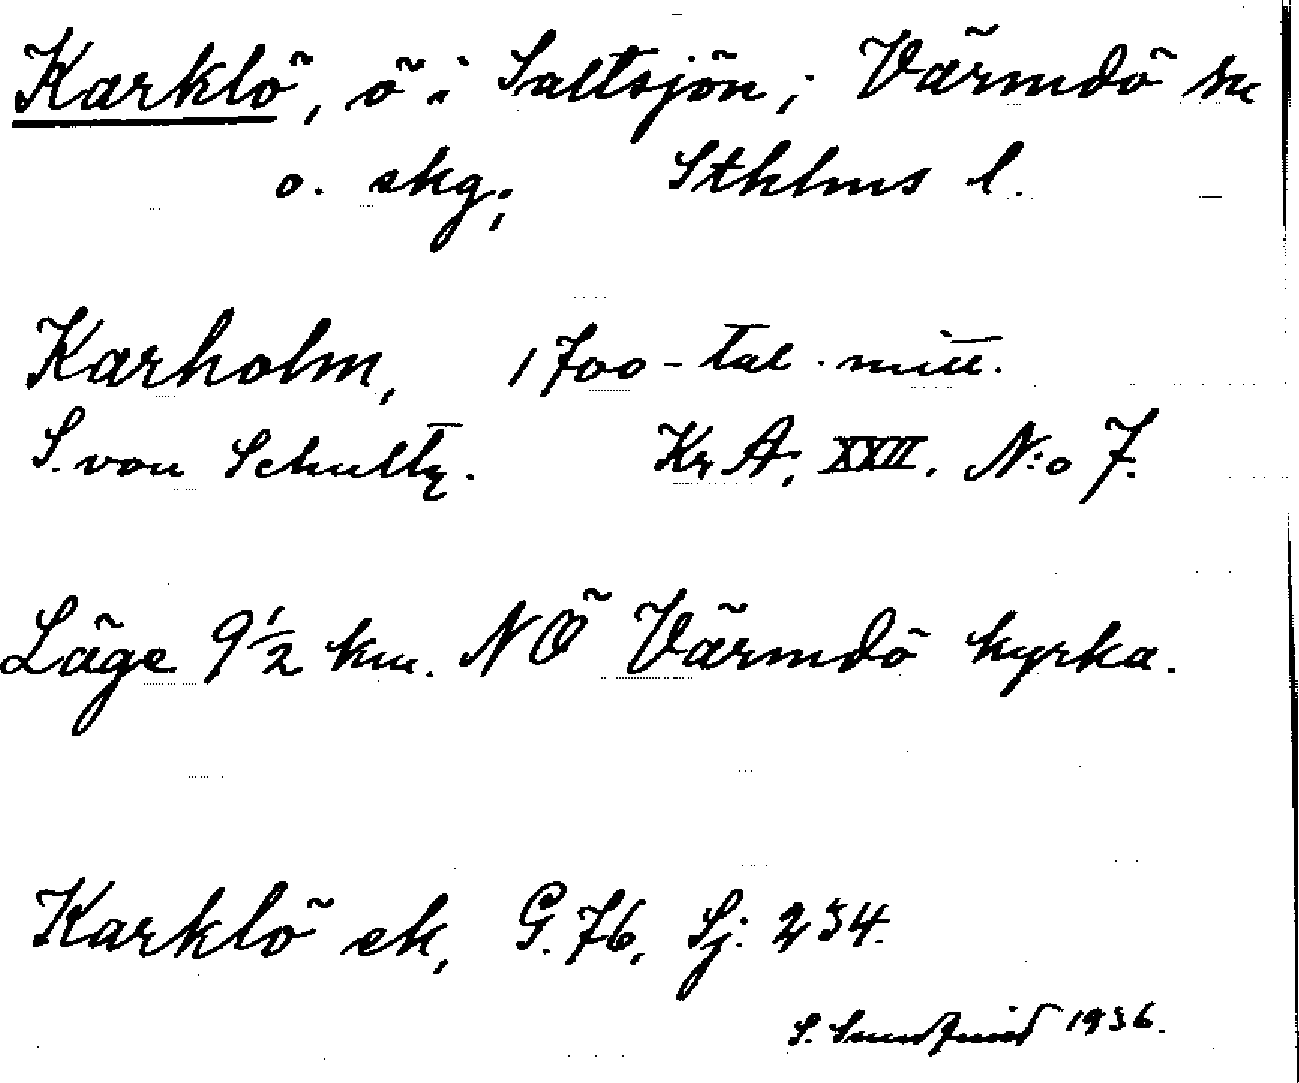 Karklö, ö i Saltsjön; Värmdö sn
o. skg; Sthlms l.
Karholm, 1700-tal. mitt.
S. von Schultz. Kr A, XXII. N:o 7.
Läge 9 1/2 km. NÖ Värmdö kyrka.
Karklö ek, G. 76, Sj: 234.
S. 1936.